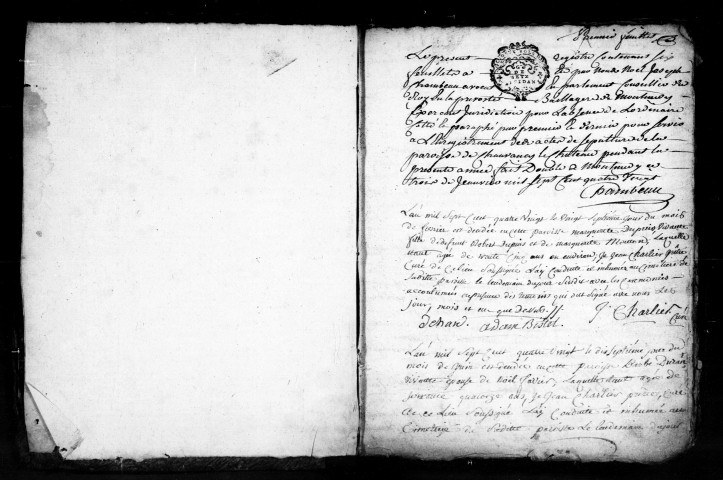 premier feuillet
Le present registre contenant six
feuillets a été par nous Noel Joseph
Chambeau avocat en parlement conseiller du
Roy en la prevosté Bailliagere de Montmedy
exercant Jurisdiction pour Labsence de Lordinaire
cotté et paraphé par premier et dernier pour servir
a Lenregistrement des actes de sepulture de la
paroisse de Chauvancy le chateau pendant la
presente année fait Double a Montmedy ce
trois de Janvier mil sept Cent quatre Vingt
Chambeau
L'an mil Sept Cent quatre Vingt le Vingt septieme jour du mois
de fevrier est decedée en cette paroisse marguerite Dupuis
fille de defunt Robert Dupuis et de marguerite Laquelle
etant agée de ans ou environ, Je Jean Charlier prêtre
Curé de ce lieu Soussigné L'ay Conduitte et inhumée au Cimetiere de
Laditte paroisse le lendemain du jour Susdit avec les ceremonies
accoutumées en presence des temoins qui ont signé avec nous Les
jour, mois et an que dessus //
Jehan adam Bestel J. Charlier Curé
L'an mil Sept Cent quatre Vingt le dix Septieme jour du
mois de est decedée en cette paroisse
épouse de Noël Laquelle etant agée de
quatorze ans, Je Jean Charlier prêtre, Curé
de ce Lieu Soussigné L'ay Conduitte et inhumée au
Cimetiere de Laditte paroisse Le lendemain du jour